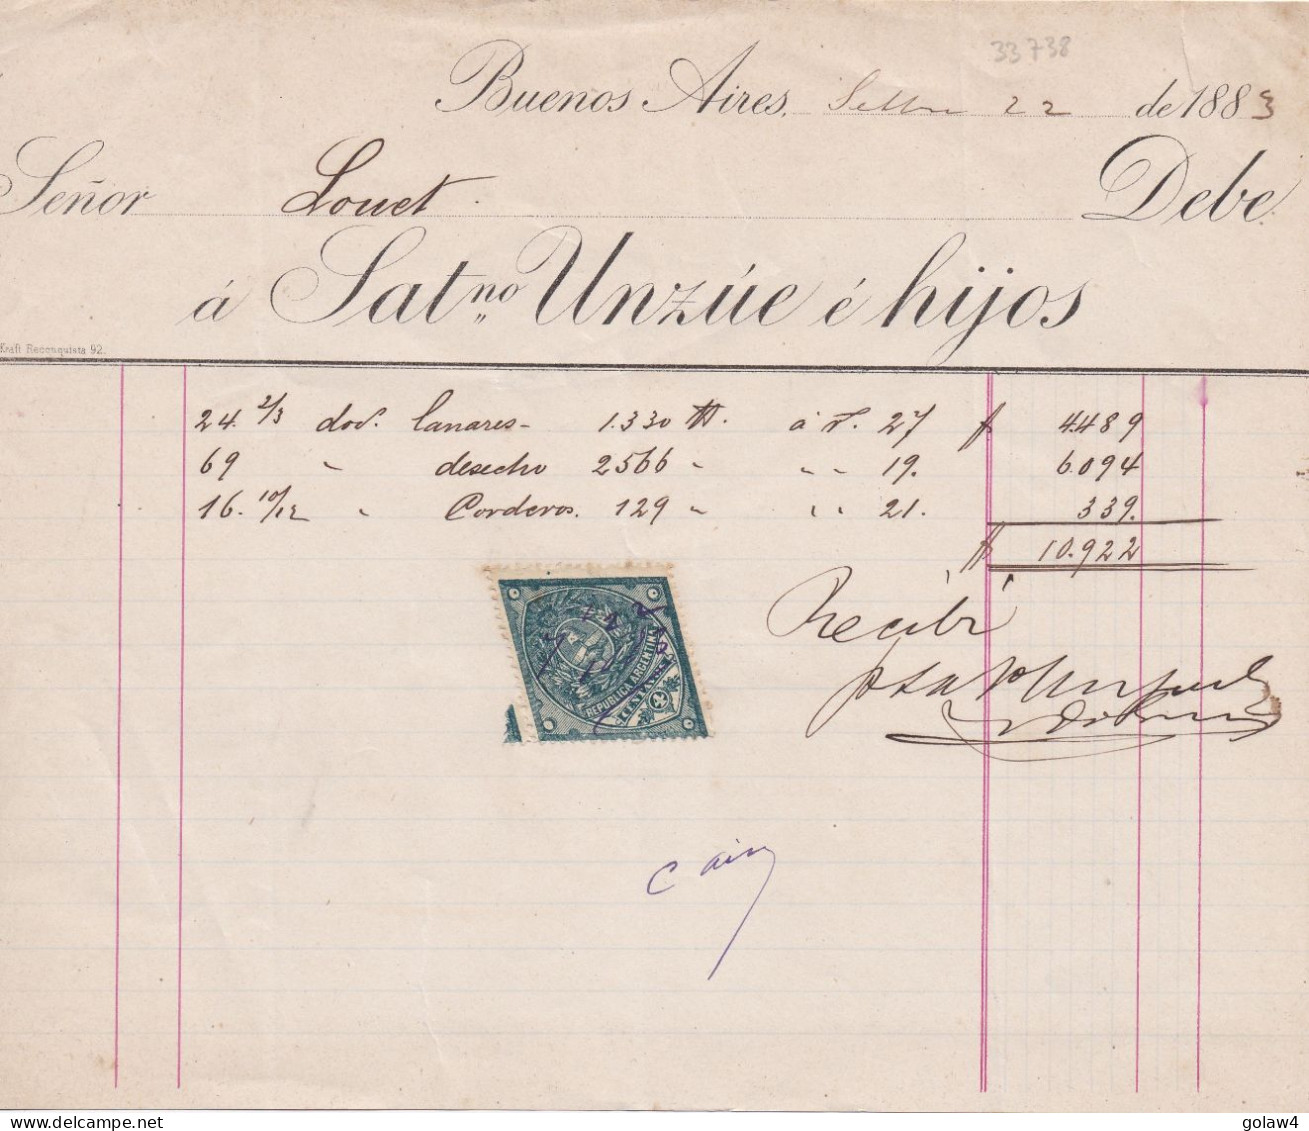 33738
Buenos Aires. Setbre 22 de 1883
Señor Louet. Debe
á Sat.no Unzúe é hijos
Kraft Reconquista 92.
24. 2/3 doc. lanares - 1.330 lb. á r. 27 $ 4.489
69 " desecho 2566 " " " 19. 6.094
16. 10/12 " Corderos. 129 " " " 21. 339.
$ 10.922
Recibí
REPUBLICA ARGENTINA
4 CENTAVOS
golaw4
www.delcampe.net